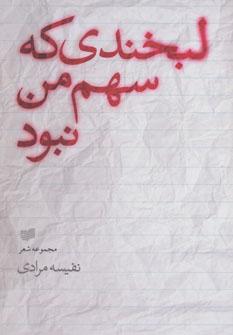 لبخندی که
سهم من
نبود
مجموعه شعر
نفیسه مرادی